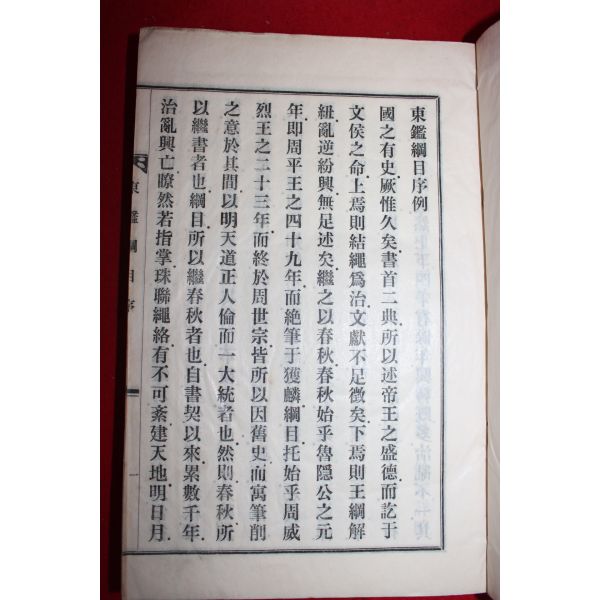 東鑑綱目序例
國之有史厥惟久矣書首二典所以述帝王之盛德而訖于
文侯之命上焉則結繩爲治文獻不足徵矣下焉則王綱解
紐亂逆紛興無足述矣繼之以春秋春秋始乎魯隱公之元
年即周平王之四十九年而絶筆于獲麟綱目托始乎周威
烈王之二十三年而終於周世宗皆所以因舊史而寓筆削
之意於其間以明天道正人倫而一大統者也然則春秋所
以繼書者也綱目所以繼春秋者也自書契以來累數千年
治亂興亡瞭然若指掌珠聯繩絡有不可紊建天地明日月
東鑑綱目序
一